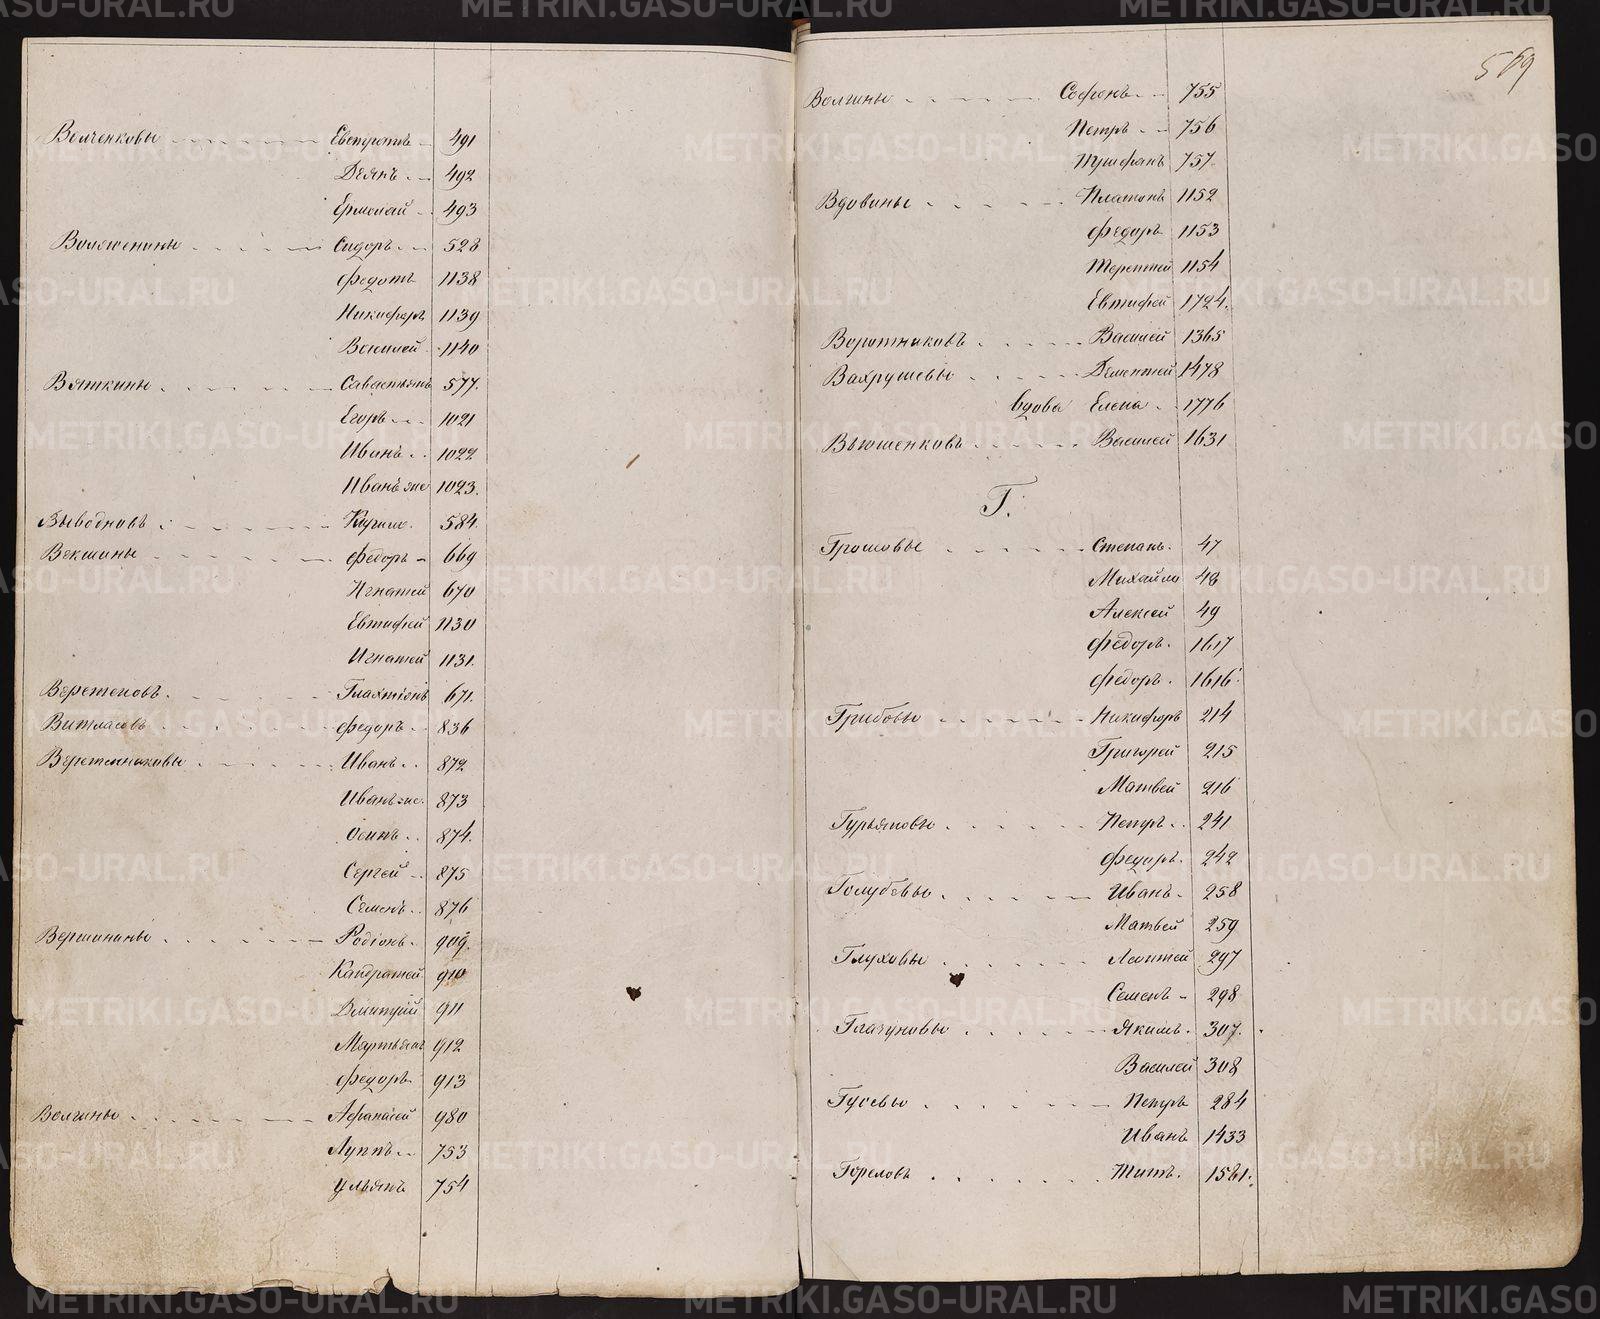 Волченковы Евстратъ 491
Деянъ 492
Ермолай 493
Волеженины Сидоръ 528
Федотъ 1138
Никифоръ 1139
Василей 1140
Вяткины Савастьянъ 577.
Егоръ 1021
Иванъ 1022
Иванъ же 1023.
Выводновъ 584.
Векшины Федоръ 669
Игнатей 670
Евтифей 1130
Игнатей 1131.
Веретеновъ. Галахтіонъ 671.
Витласовъ Федоръ 836
Веретенниковы Иванъ 872
Иванъ же. 873
Осипъ 874.
Сергей 875
Семенъ 876
Вершинины Родіонъ. 909.
Кандратей 910
Дмитрій 911
Мартьянъ 912
Федоръ 913
Волгины Афанасей 980
Луппъ 753
Ульянъ 754
569
Волгины Софонъ 755
Петръ 756
Труфанъ 757.
Вдовины Платонъ 1152
Федоръ 1153
Терентей 1154
Евтифей 1724.
Воротниковъ Василей 1365
Вахрушевы Дементей 1478
вдова Елена 1776
Вьюшенковъ Василей 1631
Г.
Громовы Степанъ. 47
Михайло 48
Алексей 49
Федоръ. 1617
Федоръ. 1616.
Грибовы Никифоръ 214
Григорей 215
Матвей 216
Гурьяновы Петръ 241
Федоръ. 242
Голубевы Иванъ 258
Матвей 259
Глуховы Леонтей 297
Семенъ 298
Глазуновы Якимъ. 307.
Василей 308
Гусевы Петръ 284
Иванъ 1433
Гореловъ Титъ. 1581.
METRIKI.GASO-URAL.RU